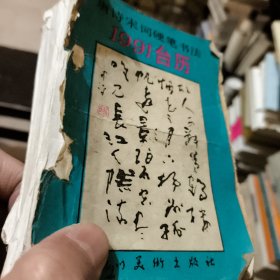 唐诗宋词硬笔书法
1991台历
故人西辞黄鹤楼
烟花三月下扬州孤
帆远影碧空尽
唯见长江天际流
美术出版社